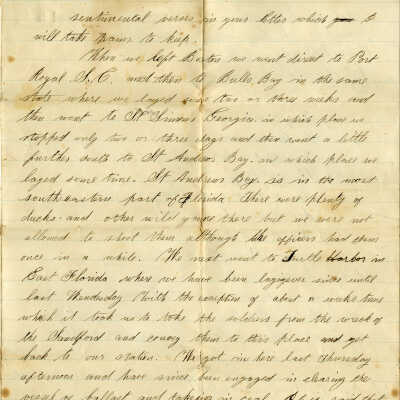 sentimental verses in your letter which I
will take pains to keep.
When we left Boston we went direct to Port
Royal S, C. and then to Bulls Bay in the same
state where we layed some two or three weeks and
then went to St Simons Georgia in which place we
stopped only two or three days and then went a little
further south to St Andrews Bay. in which place we
layed some time. St Andrews Bay. is in the most
southeastern part of Florida There were plenty of
ducks and other wild game there but we were not
allowed to shoot them although the officers had them
once in a while. We next went to Turtle Harbor in
East Florida where we have been laying ever since until
last Wednesday With the exception of about a weeks time
which it took us to take the soldiers from the wreck of
the Bradford and convey them to this place and get
back to our station. We got in here last Thursday
afternoon and have since been engaged in clearing the
vessel of ballast and taking in coal. said that